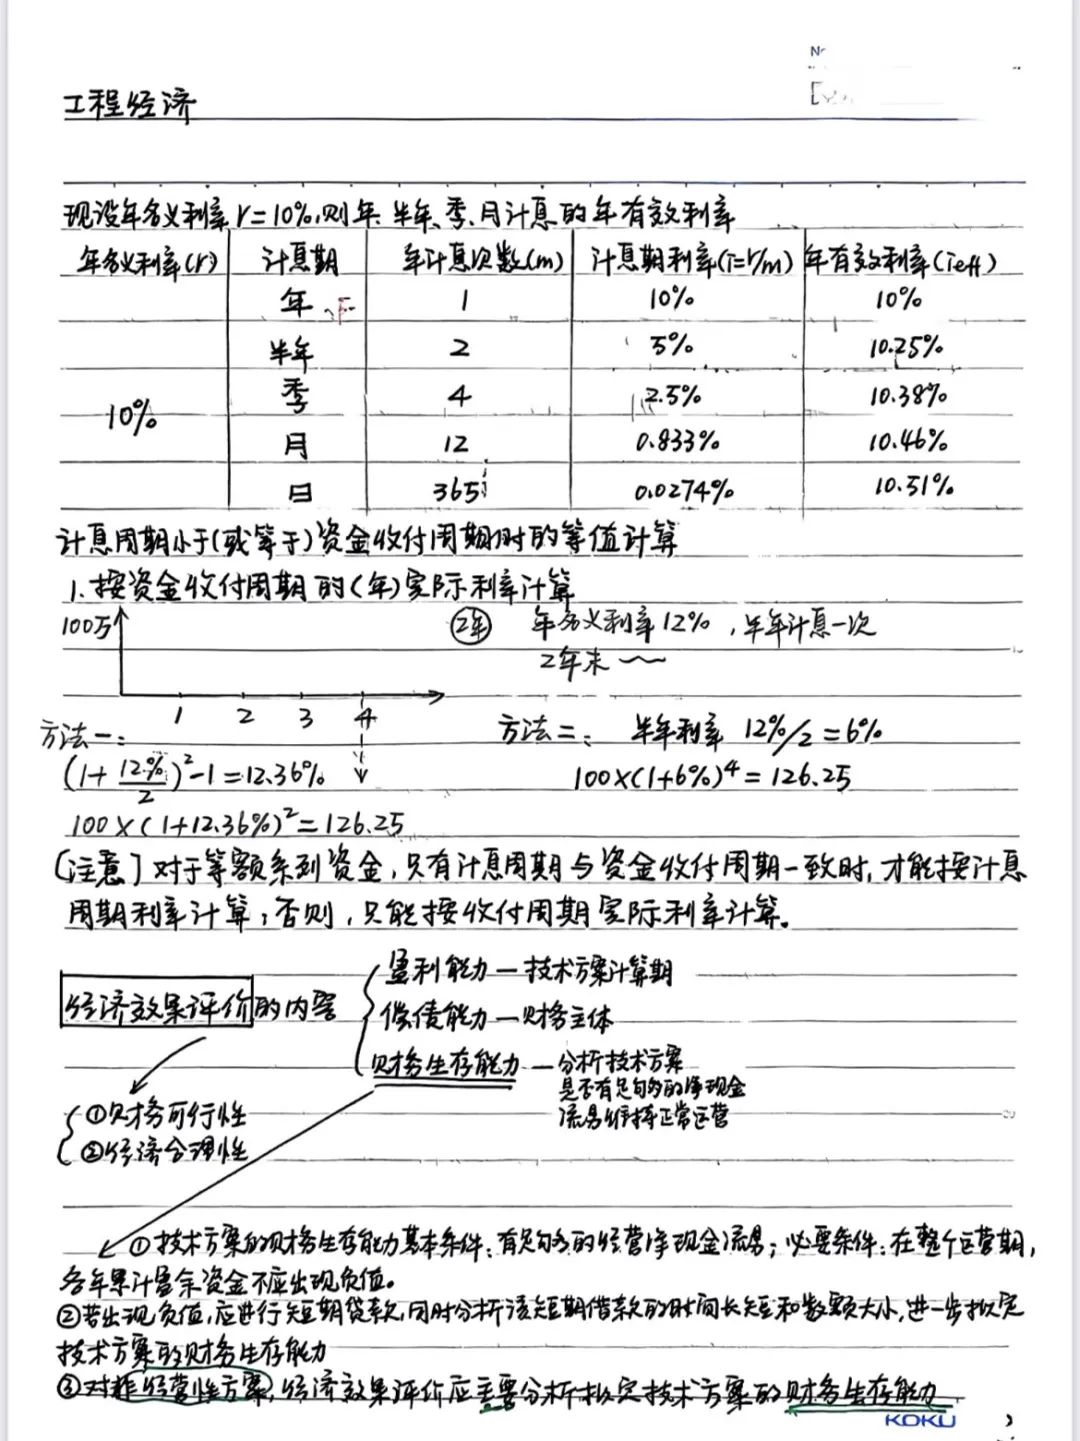 工程经济
现设年名义利率r=10%,则年、半年、季、月计息的年有效利率
年名义利率(r) 计息期 年计息次数(m) 计息期利率(i=r/m) 年有效利率(ieff)
年 1 10% 10%
半年 2 5% 10.25%
季 4 2.5% 10.38%
10%
月 12 0.833% 10.46%
日 365 0.0274% 10.51%
计息周期小于(或等于)资金收付周期时的等值计算
1.按资金收付周期的(年)实际利率计算
100万 2年 年名义利率12%,半年计息一次
2年末
1 2 3 4
方法一: 方法二: 半年利率 12%/2=6%
(1+12%/2)²-1=12.36% 100×(1+6%)⁴=126.25
100×(1+12.36%)²=126.25
[注意]对于等额系列资金,只有计息周期与资金收付周期一致时,才能按计息
周期利率计算;否则,只能按收付周期实际利率计算。
经济效果评价的内容
盈利能力—技术方案计算期
偿债能力—财务主体
财务生存能力—分析技术方案
是否有足够的净现金
流量维持正常运营
①财务可行性
②经济合理性
①技术方案的财务生存能力基本条件:有足够的经营净现金流量;必要条件:在整个运营期,
各年累计盈余资金不应出现负值。
②若出现负值,应进行短期贷款,同时分析该短期借款的时间长短和数额大小,进一步拟定
技术方案的财务生存能力
③对非经营性方案,经济效果评价应主要分析拟定技术方案的财务生存能力
KOKU